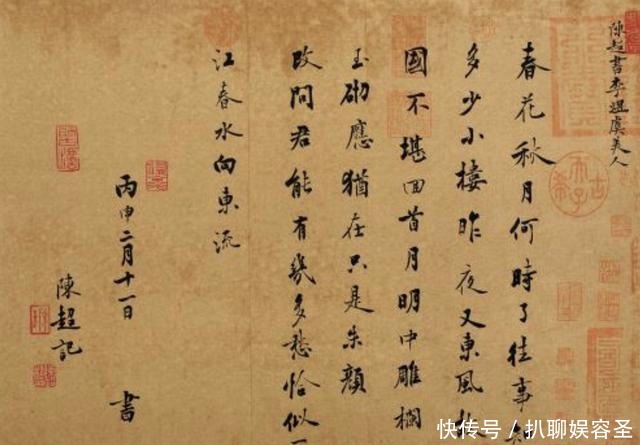 陳超書李煜虞美人
春花秋月何時了往事
多少小樓昨夜又東風
國不堪回首月明中雕欄
玉砌應猶在只是朱顏
改問君能有幾多愁恰似
江春水向東流
丙申二月十一日
書
陳超記
古希天子
快传号/扒聊娱容圣